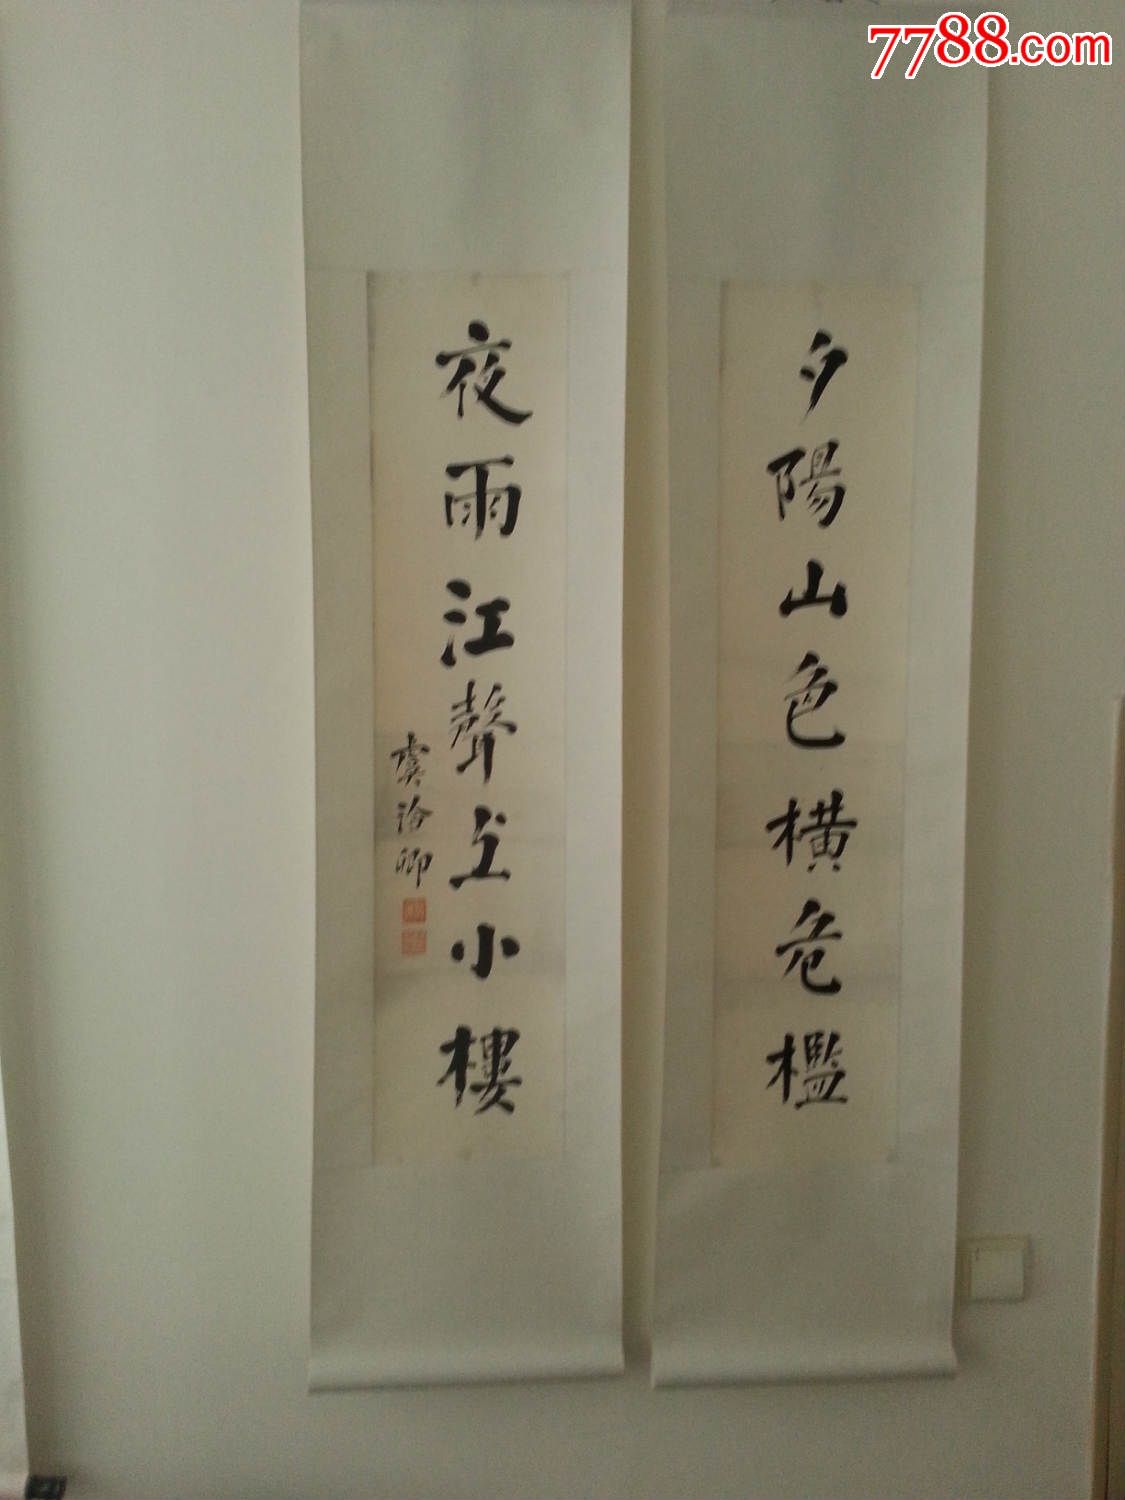 7788.com
夕陽山色橫危檻
夜雨江聲上小樓
虞洽卿